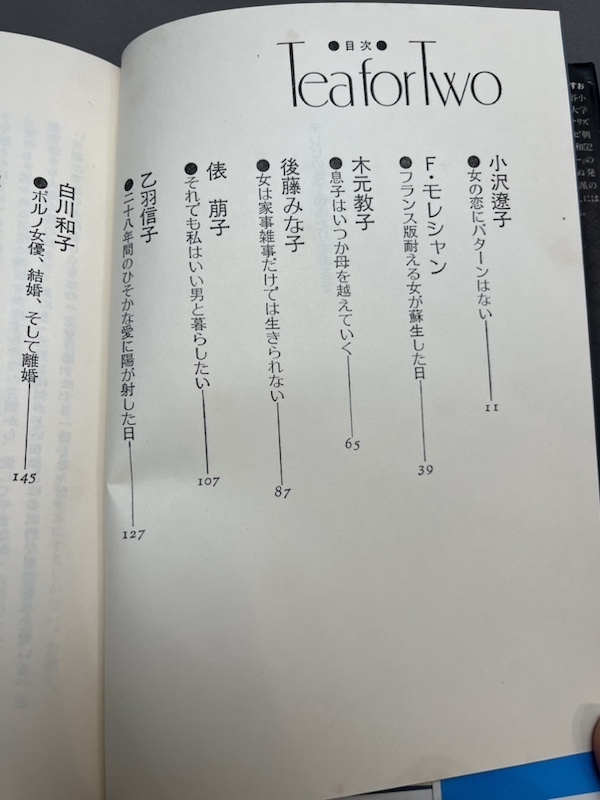 ●目次●
Tea for Two
小沢遼子
●女の恋にパターンはない
11
F・モレシャン
●フランス版耐える女が蘇生した日
39
木元教子
●息子はいつか母を越えていく
65
後藤みな子
●女は家事雑事だけでは生きられない
87
俵 萠子
●それでも私はいい男と暮らしたい
107
乙羽信子
●二十八年間のひそかな愛に陽が射した日
127
白川和子
●ポルノ女優、結婚、そして離婚
145